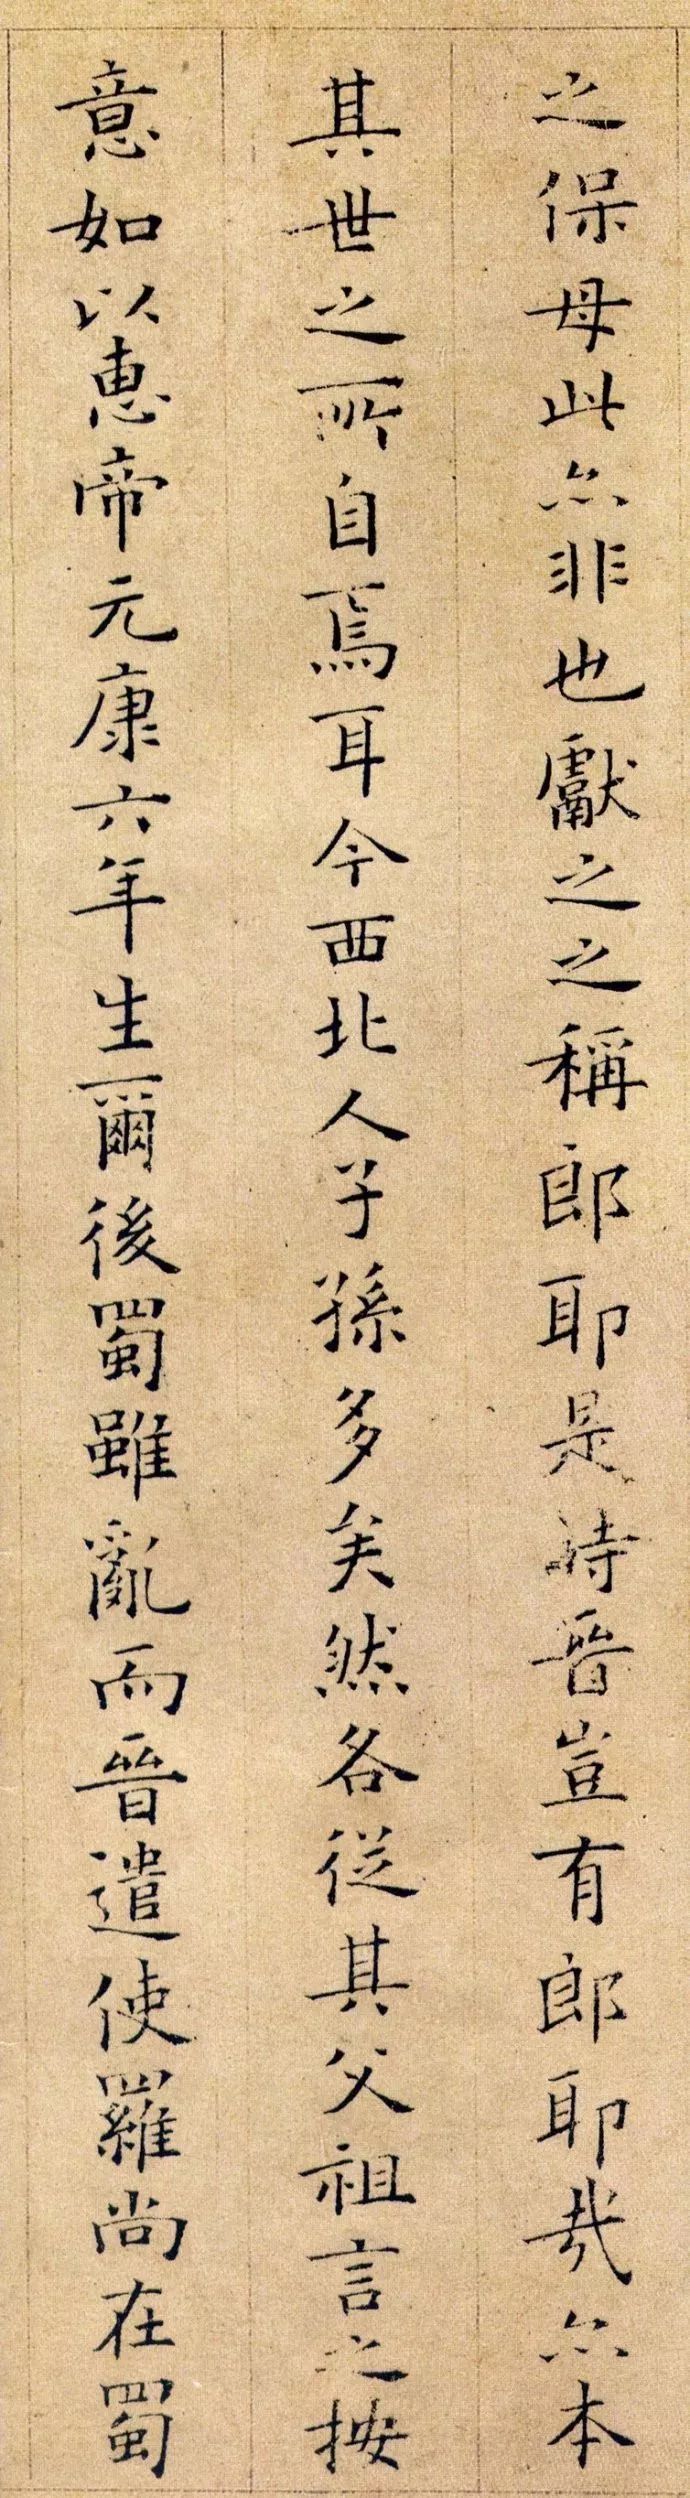 之保母此亦非也獻之之稱郎耶是時晉豈有郎耶哉亦本
其世之所自焉耳今西北人子孫多矣然各從其父祖言之按
意如以惠帝元康六年生爾後蜀雖亂而晉遣使羅尚在蜀